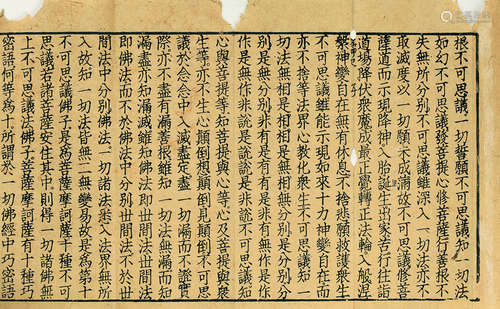 根不可思議一切誓願不可思議知一切法
如幻不可思議發菩提心修菩薩行善根不
失無所分別不可思議雖深入一切法亦不
取滅度以一切願未成滿故不可思議修菩
薩道而示現降神入胎誕生出家苦行往詣
道場降伏衆魔成最正覺轉正法輪入般涅
槃神變自在無有休息不捨悲願救護衆生
不可思議雖能示現如來十力神變自在而
亦不捨等法界心教化衆生不可思議知一
切法無相是相相是無相無分別是分別分
別是無分別非有是有有是非有無作是作
作是無作非說是說說是非說不可思議知
心與菩提等知菩提與心等心及菩提與衆
生等亦不生心顛倒想顛倒見顛倒不可思
議於念念中入滅盡定盡一切漏而不證實
際亦不盡有漏善根雖知一切法無漏而知
漏盡亦知漏滅雖知佛法即世間法世間法
即佛法而不於佛法中分別世間法不於世
間法中分別佛法一切諸法悉入法界無所
入故知一切法皆無二無變易故是為第十
不可思議佛子是為菩薩摩訶薩十種不可
思議若諸菩薩安住其中則得一切諸佛無
上不可思議法佛子菩薩摩訶薩有十種巧
密語何等為十所謂於一切佛經中巧密語